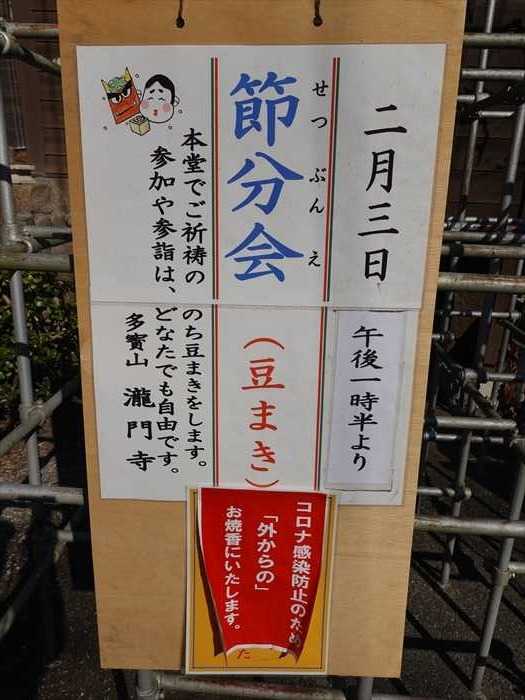 二月三日
午後一時半より
せつぶんえ
節分会
(豆まき)
本堂でご祈祷の
のち豆まきをします。
参加や参詣は、
どなたでも自由です。
多寳山 瀧門寺
コロナ感染防止のため
「外からの」
お焼香にいたします。